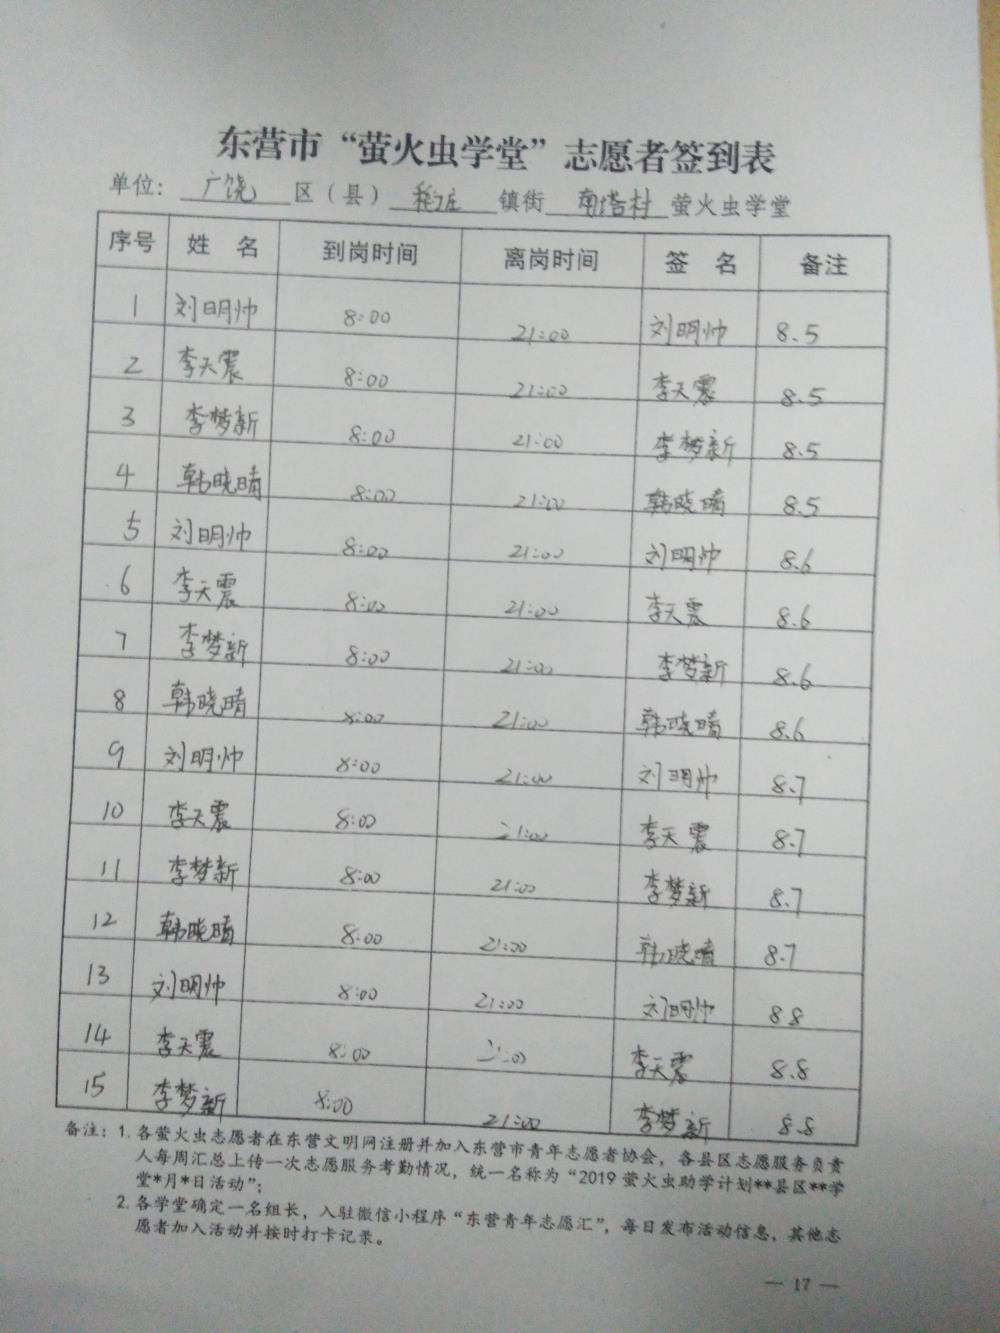 东营市“萤火虫学堂”志愿者签到表
单位: 广饶 区(县) 稻庄 镇街 南塔村 萤火虫学堂
序号 姓 名 到岗时间 离岗时间 签 名 备注
1 刘明帅 8:00 21:00 刘明帅 8.5
2 李天震 8:00 21:00 李天震 8.5
3 李梦新 8:00 21:00 李梦新 8.5
4 韩晓晴 8:00 21:00 韩晓晴 8.5
5 刘明帅 8:00 21:00 刘明帅 8.6
6 李天震 8:00 21:00 李天震 8.6
7 李梦新 8:00 21:00 李梦新 8.6
8 韩晓晴 8:00 21:00 韩晓晴 8.6
9 刘明帅 8:00 21:00 刘明帅 8.7
10 李天震 8:00 21:00 李天震 8.7
11 李梦新 8:00 21:00 李梦新 8.7
12 韩晓晴 8:00 21:00 韩晓晴 8.7
13 刘明帅 8:00 21:00 刘明帅 8.8
14 李天震 8:00 21:00 李天震 8.8
15 李梦新 8:00 21:00 李梦新 8.8
备注: 1. 各萤火虫志愿者在东营文明网注册并加入东营市青年志愿者协会, 各县区志愿服务负责
人每周汇总上传一次志愿服务考勤情况, 统一名称为“2019 萤火虫助学计划**县区**学
堂*月*日活动”;
2. 各学堂确定一名组长, 入驻微信小程序“东营青年志愿汇”, 每日发布活动信息, 其他志
愿者加入活动并按时打卡记录。
— 17 —